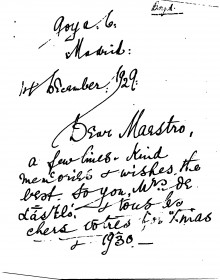 Goya 6.
Madrid:
1st December 1929.
Dear Maestro,
a few lines & kind
memories & wishes the
best to you, Mrs de
& tous les
chers votres for Xmas
& 1930.—